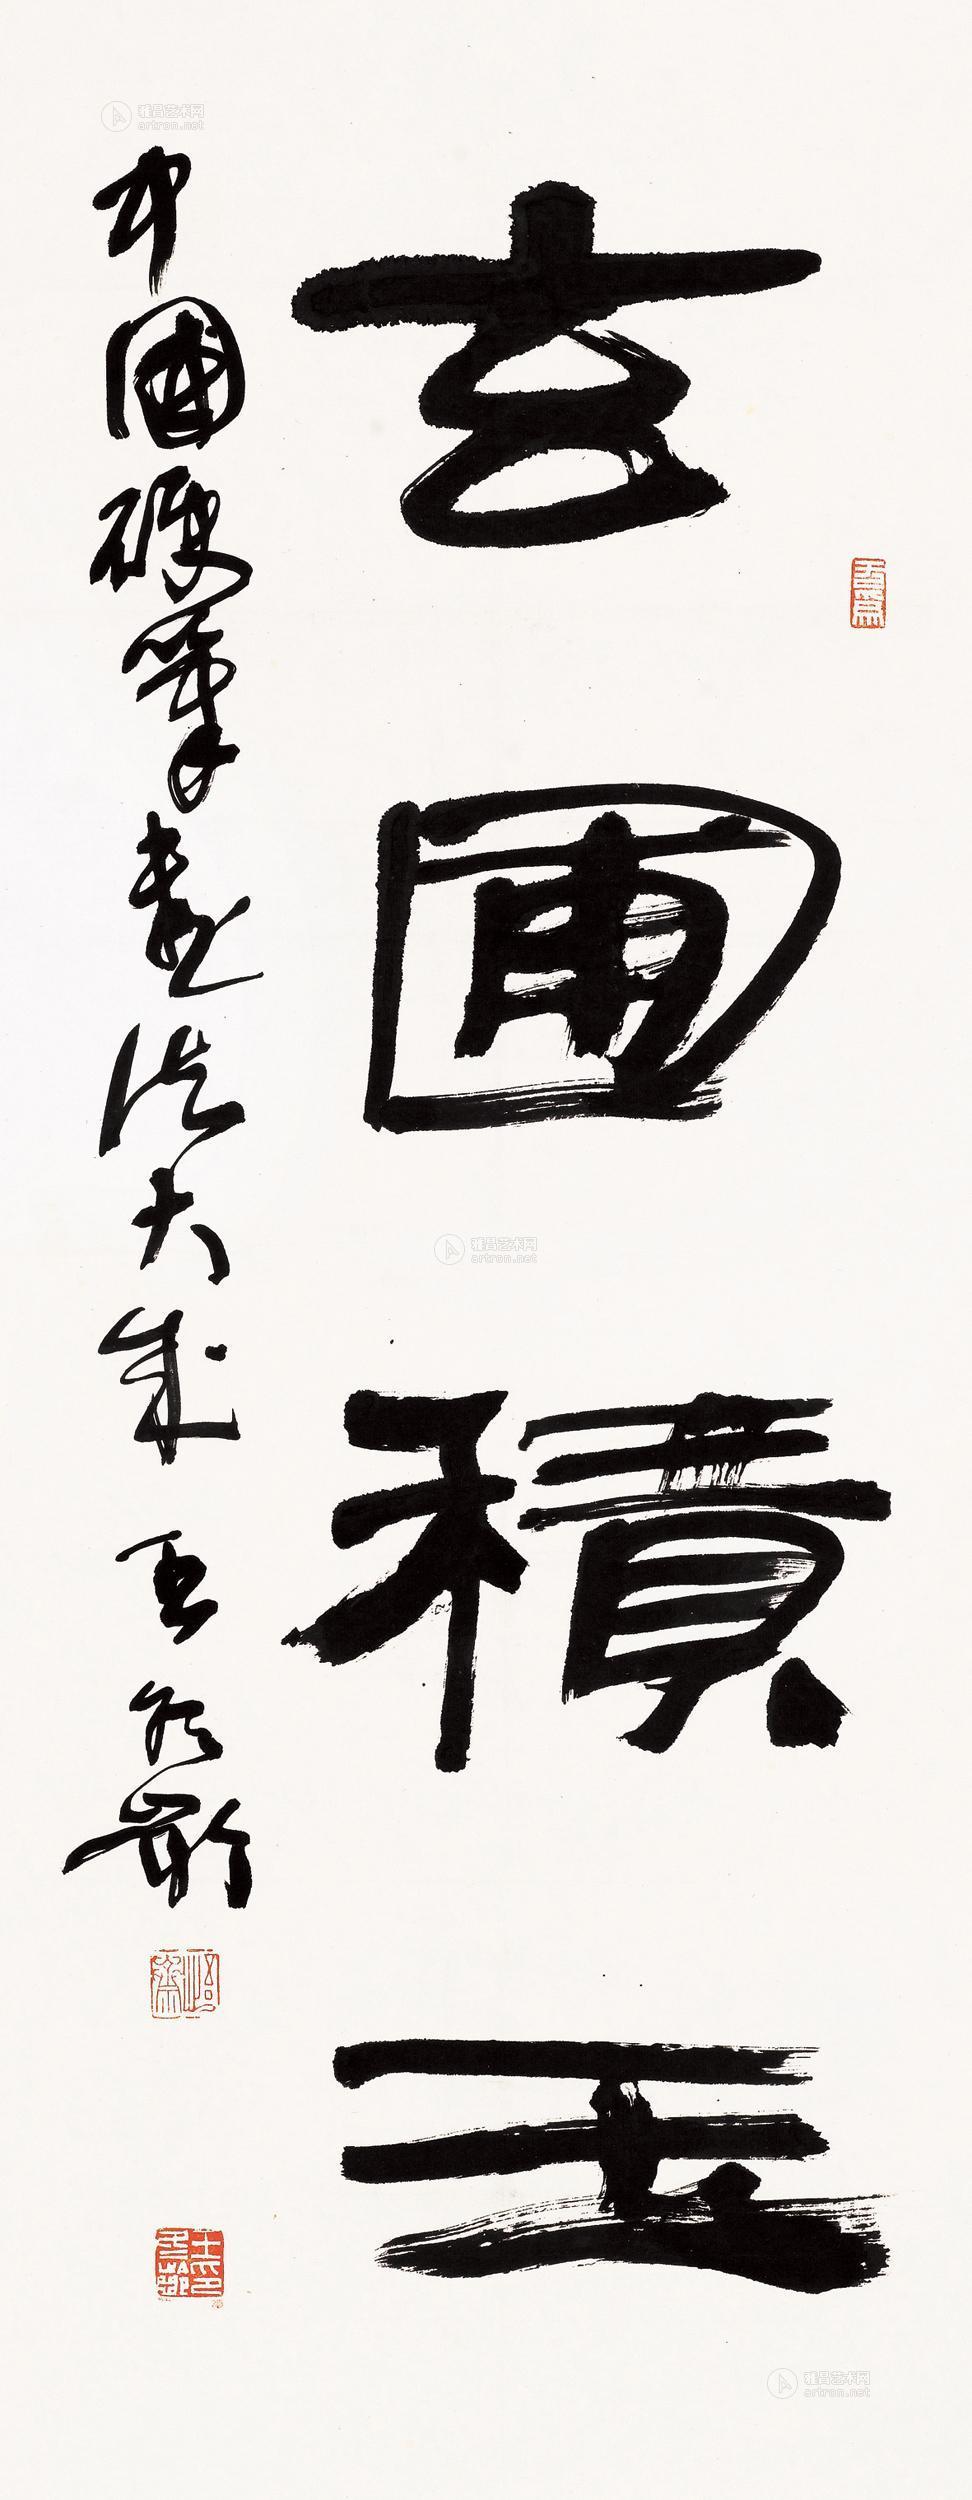 玄圃積玉
中國硬筆書法大成 王冬齡
雅昌艺术网
artron.net
雅昌艺术网
artron.net
雅昌艺术网
artron.net